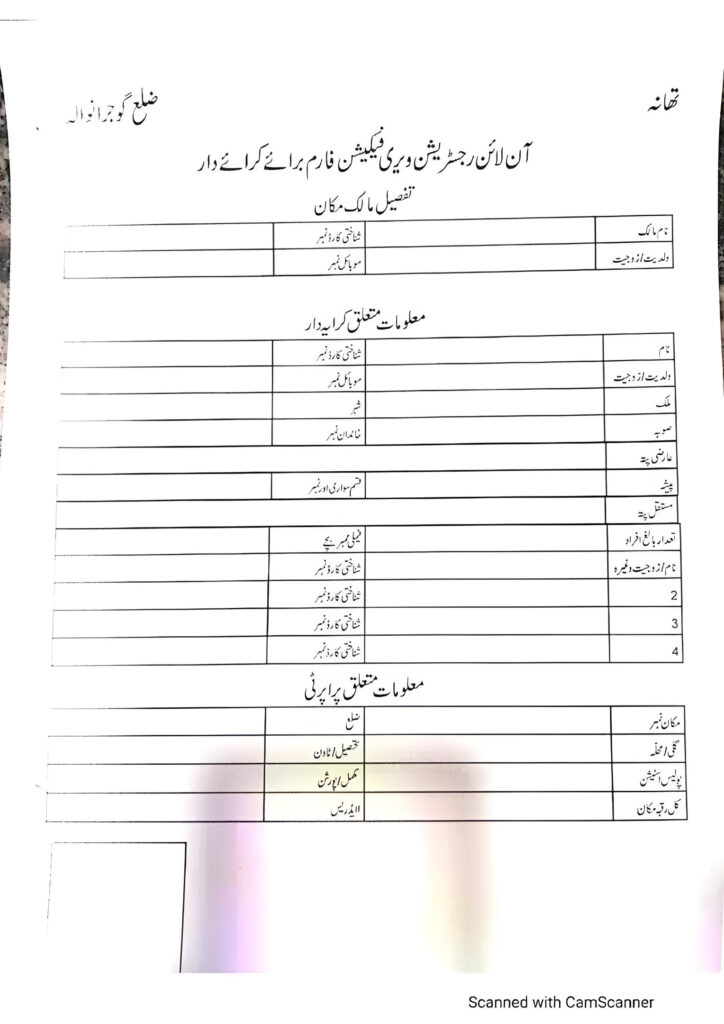 تھانہ ضلع گوجرانوالہ
آن لائن رجسٹریشن ویری فیکیشن فارم برائے کرائے دار
تفصیل مالک مکان
نام مالک شناختی کارڈ نمبر
ولدیت/زوجیت موبائل نمبر
معلومات متعلق کرایہ دار
نام شناختی کارڈ نمبر
ولدیت/زوجیت موبائل نمبر
ملک شہر
صوبہ خاندان نمبر
عارضی پتہ
پیشہ قسم سواری اور نمبر
مستقل پتہ
تعداد بالغ افراد فیملی ممبر بچے
نام/زوجیت وغیرہ شناختی کارڈ نمبر
2 شناختی کارڈ نمبر
3 شناختی کارڈ نمبر
4 شناختی کارڈ نمبر
معلومات متعلق پراپرٹی
مکان نمبر ضلع
گلی/محلہ تحصیل/ٹاؤن
پولیس اسٹیشن مکمل/پورشن
کل رقبہ مکان ایڈریس
Scanned with CamScanner